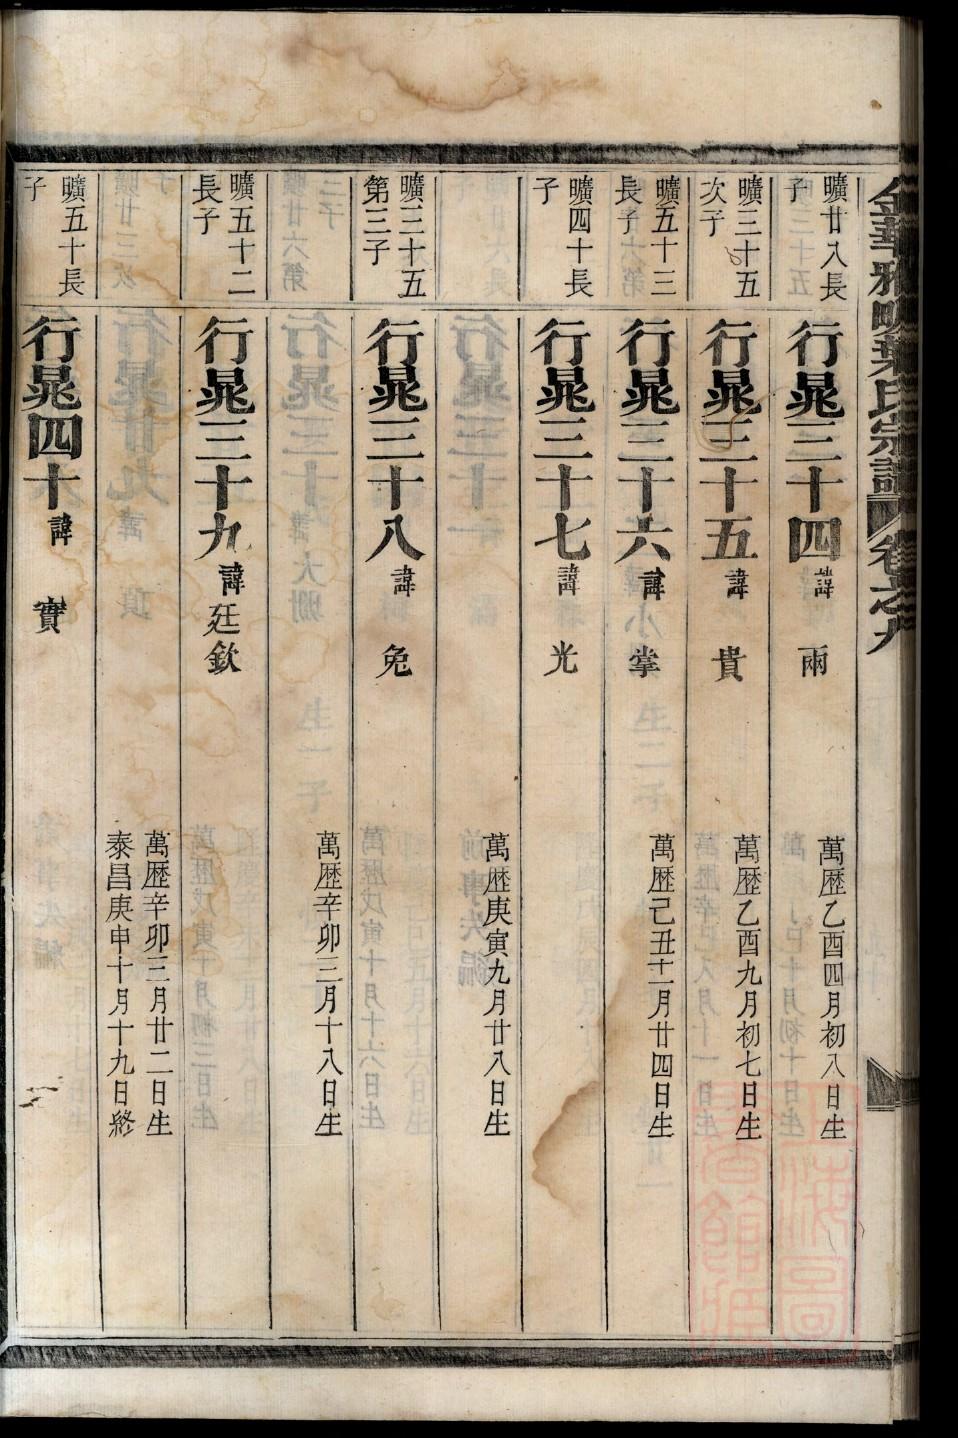 曠廿八長
子
行晁三十四諱 兩
萬歷乙酉四月初八日生
曠三十五
次子
行晁三十五諱 貴
萬歷乙酉九月初七日生
曠五十三
長子
行晁三十六諱 掌
萬歷己丑十一月廿四日生
曠四十長
子
行晁三十七諱 光
萬歷庚寅九月廿八日生
曠三十五
第三子
行晁三十八諱 免
萬歷辛卯三月十八日生
曠五十二
長子
行晁三十九諱廷欽
萬歷辛卯三月廿二日生
泰昌庚申十月十九日終
曠五十長
子
行晁四十諱 實